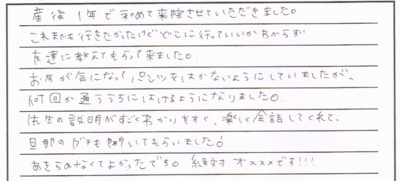 産後1年で初めて来院させていただきました。
これまでも行きたかったけどどこに行っていいかわからず
友達に教えてもらって来ました。
お尻が気になってパンツをはかないようにしていましたが、
何回か通ううちにはけるようになりました。
先生の説明がすごくわかりやすく、楽しく会話してくれて、
旦那のグチも聞いてもらいました!
あきらめなくてよかったです。絶対オススメです!!!